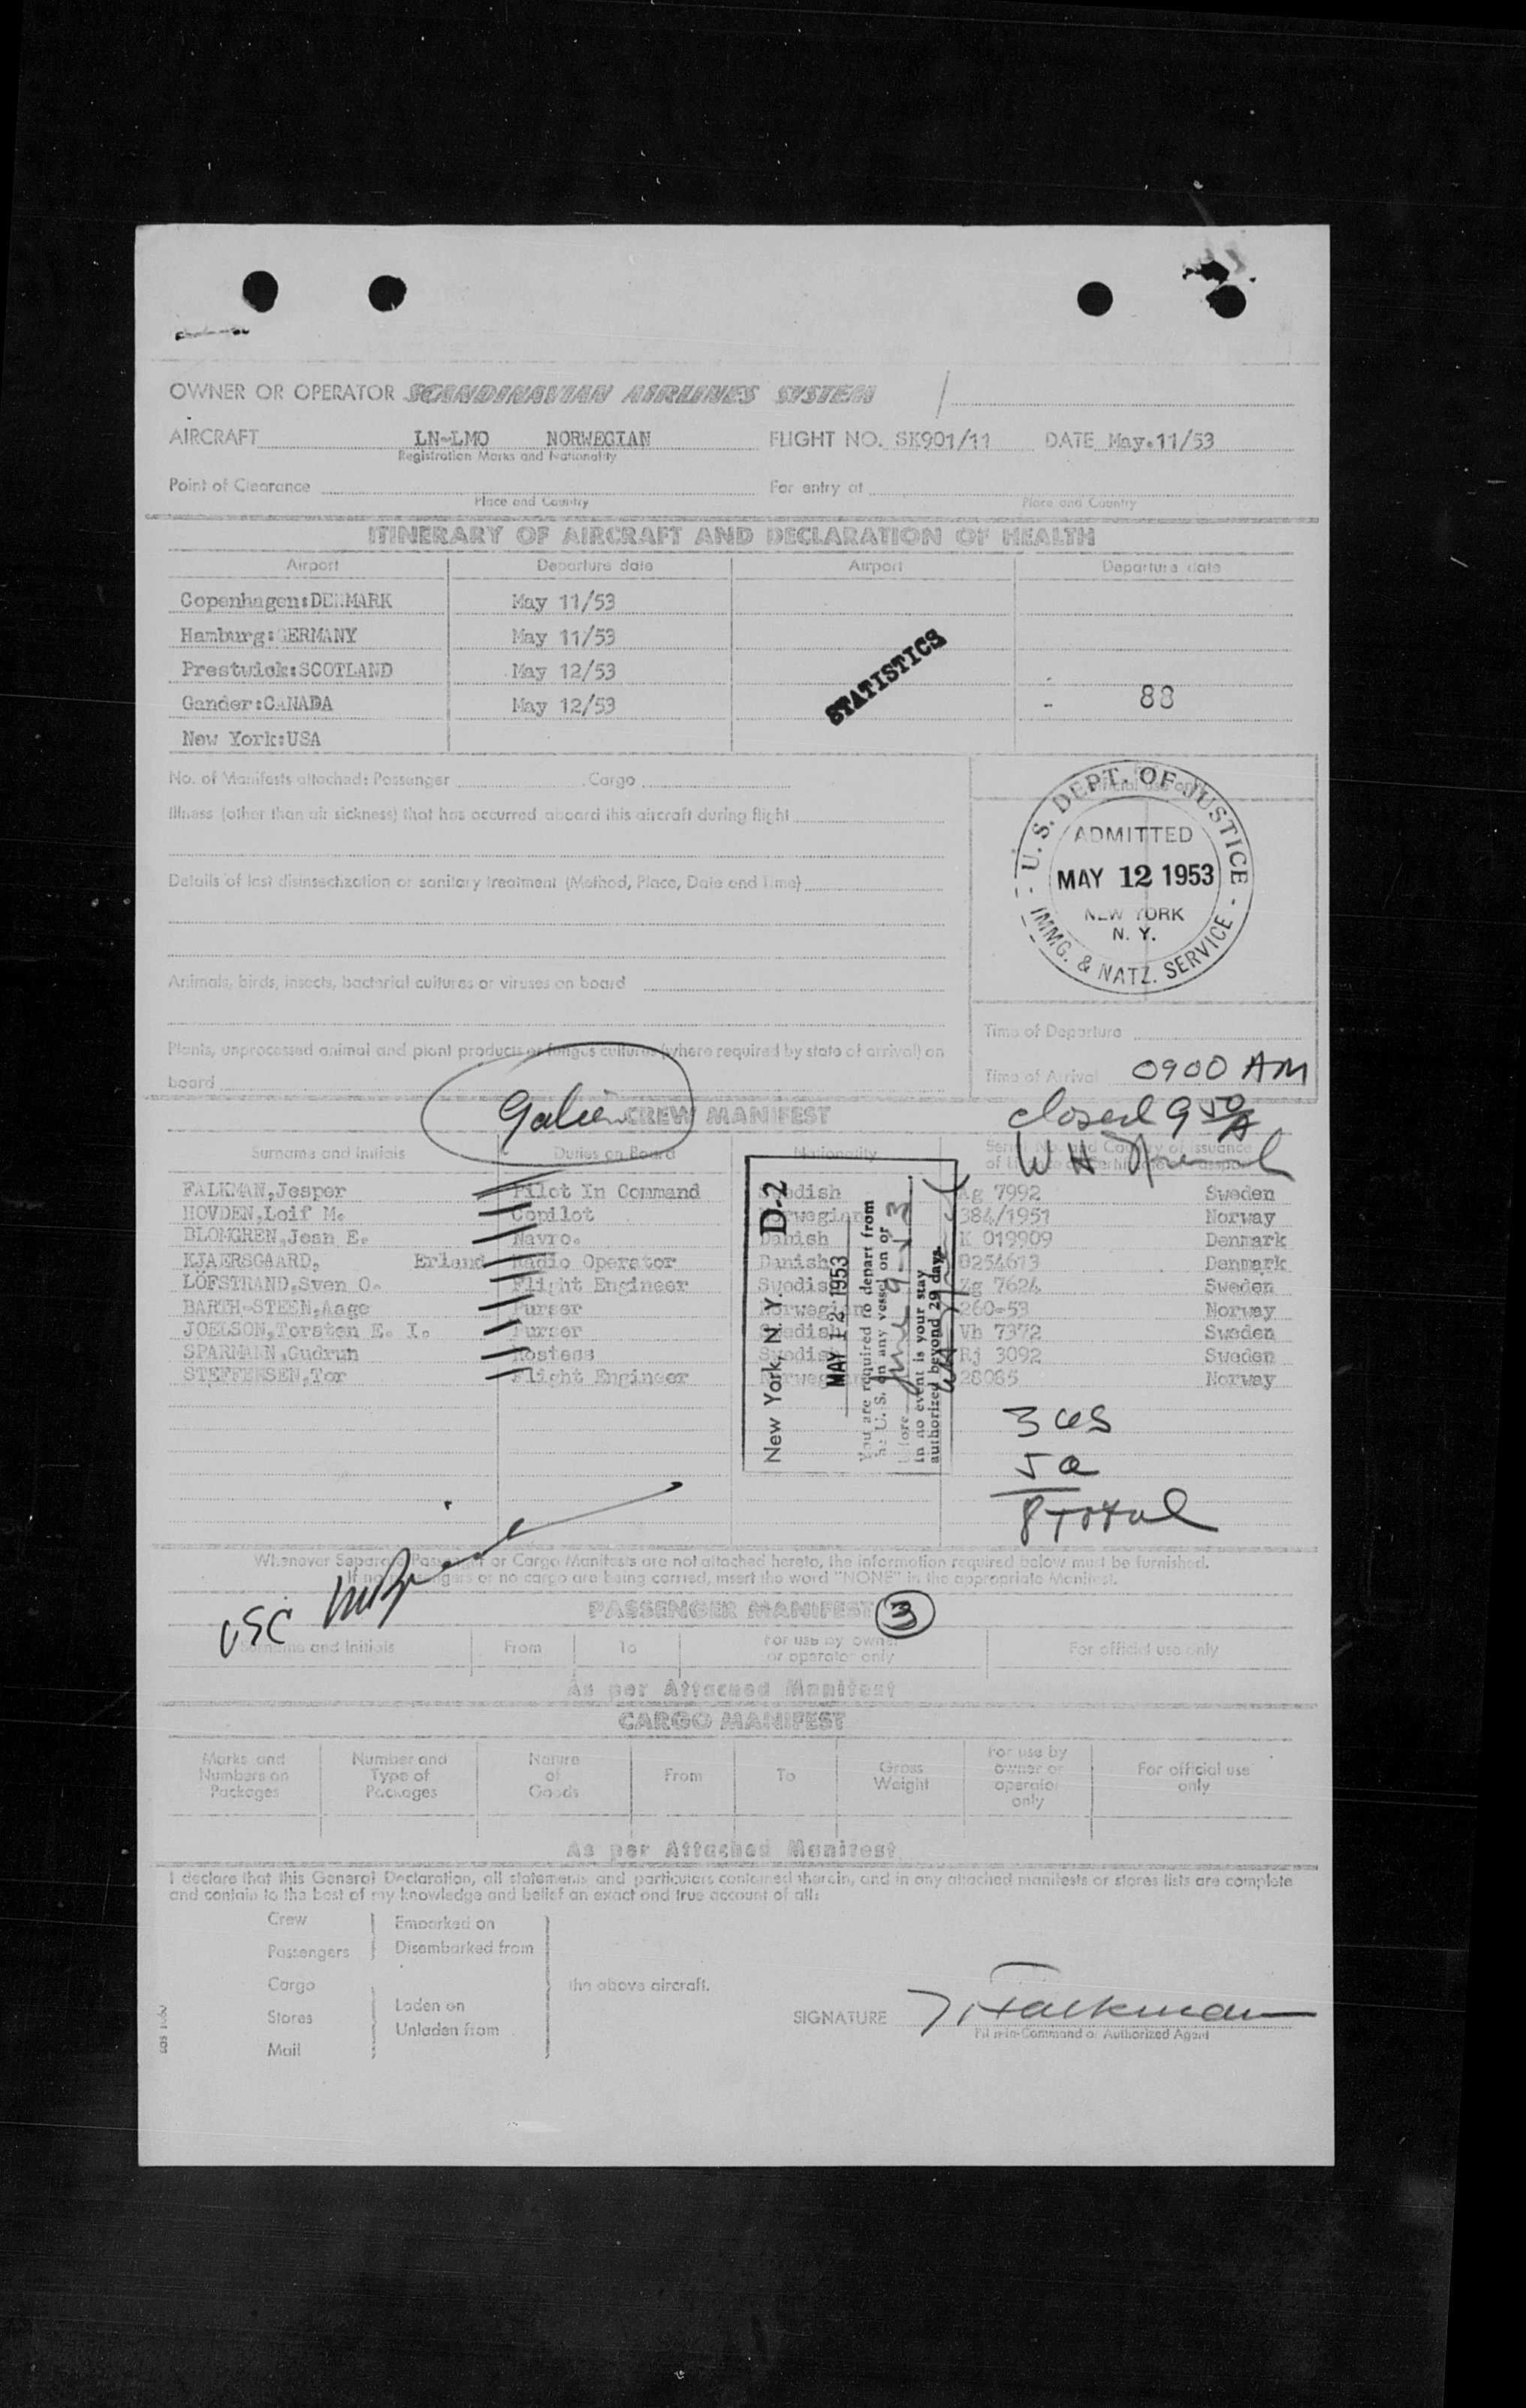 OWNER OR OPERATOR SCANDINAVIAN AIRLINES SYSTEM
AIRCRAFT LN-LMO NORWEGIAN FLIGHT NO. SK901/11 DATE May.11/53
Registration Marks and Nationality
Point of Clearance For entry at
Place and Country Place and Country
ITINERARY OF AIRCRAFT AND DECLARATION OF HEALTH
Airport Departure date Airport Departure date
Copenhagen:DENMARK May 11/53
Hamburg:GERMANY May 11/53
Prestwick:SCOTLAND May 12/53
Gander:CANADA May 12/53 88
New York:USA
STATISTICS
No. of Manifests attached: Passenger Cargo
Illness (other than air sickness) that has occurred aboard this aircraft during flight
Details of last disinsectization or sanitary treatment (Method, Place, Date and Time)
Animals, birds, insects, bacterial cultures or viruses on board
Plants, unprocessed animal and plant products or fungus cultures (where required by state of arrival) on
board
official use only
U.S. DEPT. OF JUSTICE
ADMITTED
MAY 12 1953
NEW YORK
N. Y.
IMMG. & NATZ. SERVICE
Time of Departure
Time of Arrival 0900 AM
closed 9 50 A
W H
CREW MANIFEST
Surname and Initials Duties on Board Nationality Serial No. and Country of issuance
FALKMAN,Jesper Pilot In Command Swedish Kg 7992 Sweden
HOVDEN,Leif M. Copilot Norwegian 384/1951 Norway
BLOMGREN,Jean E. Navro. Danish K 019909 Denmark
KJAERSGAARD, Erland Radio Operator Danish 0254613 Denmark
LÖFSTRAND,Sven O. Flight Engineer Swedish Zg 7624 Sweden
BARTH-STEEN,Aage Purser Norwegian 260-53 Norway
JOELSON,Torsten E. I. Purser Swedish Vb 7372 Sweden
SPARMANN,Gudrun Hostess Swedish Rj 3092 Sweden
STEFFENSEN,Tor Flight Engineer Norwegian 28085 Norway
New York, N. Y. D-2
MAY 12 1953
You are required to depart from
the U. S. on any vessel on or
before June 9-53
in no event is your stay
authorized beyond 29 days.
3 us
5 a
8 total
Whenever Separate Passenger or Cargo Manifests are not attached hereto, the information required below must be furnished.
If no passengers or no cargo are being carried, insert the word "NONE" in the appropriate Manifest.
USC
PASSENGER MANIFEST 3
Surname and Initials From To For use by owner or operator only For official use only
As per Attached Manifest
CARGO MANIFEST
Marks and Numbers on Packages Number and Type of Packages Nature of Goods From To Gross Weight For use by owner or operator only For official use only
As per Attached Manifest
I declare that this General Declaration, all statements and particulars contained therein, and in any attached manifests or stores lists are complete
and contain to the best of my knowledge and belief an exact and true account of all:
Crew Embarked on
Passengers Disembarked from
Cargo the above aircraft.
Stores Laden on
Mail Unladen from
SIGNATURE J Falkman
Pilot-in-Command or Authorized Agent